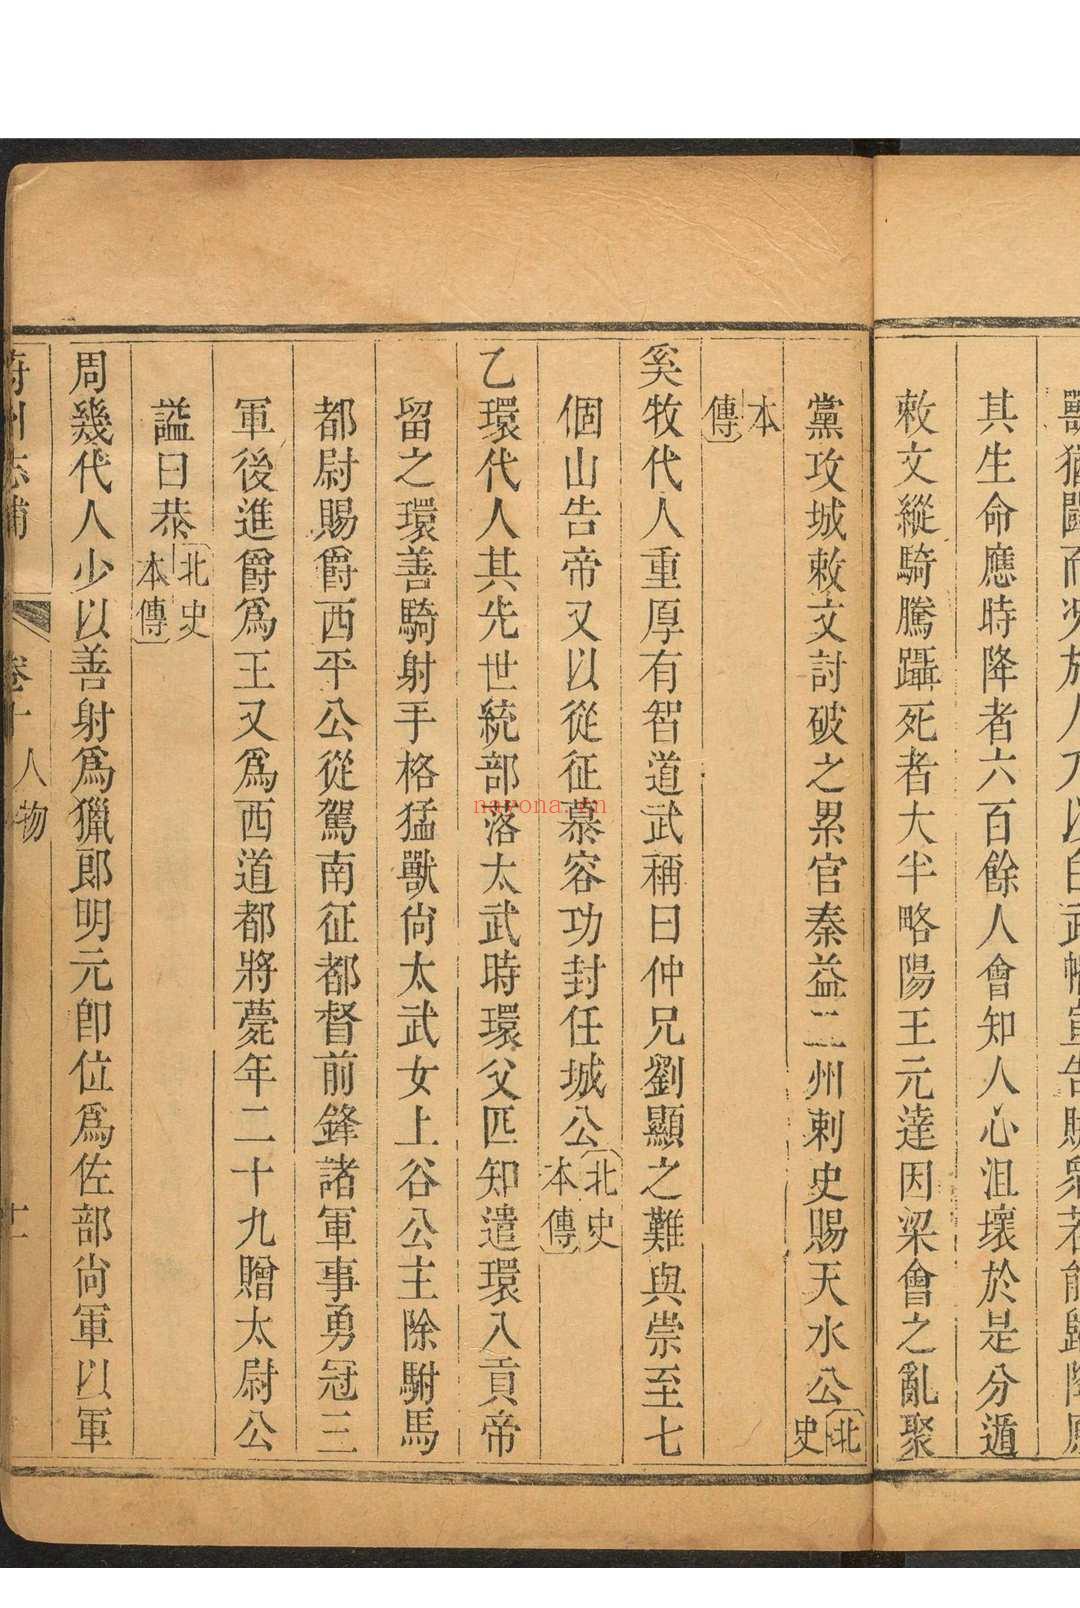 獸猶鬭而況於人乃以白武幡宣告賊衆若能歸降
其生命應時降者六百餘人會知人心沮壞於是分遁
敕文縱騎騰躡死者大半略陽王元達因梁會之亂聚
黨攻城敕文討破之累官秦益二州刺史賜天水公北史
本傳
奚牧代人重厚有智道武稱曰仲兄劉顯之難與崇至七
個山告帝又以從征慕容功封任城公北史本傳
乙環代人其先世統部落太武時環父匹知遣環入貢帝
留之環善騎射手格猛獸尙太武女上谷公主除駙馬
都尉賜爵西平公從駕南征都督前鋒諸軍事勇冠三
軍後進爵爲王又爲西道都將薨年二十九贈太尉公
謚曰恭北史本傳
周幾代人少以善射爲獵郎明元卽位爲佐部尙軍以軍
蔚州志補 卷十 人物 十一
nayona.cn